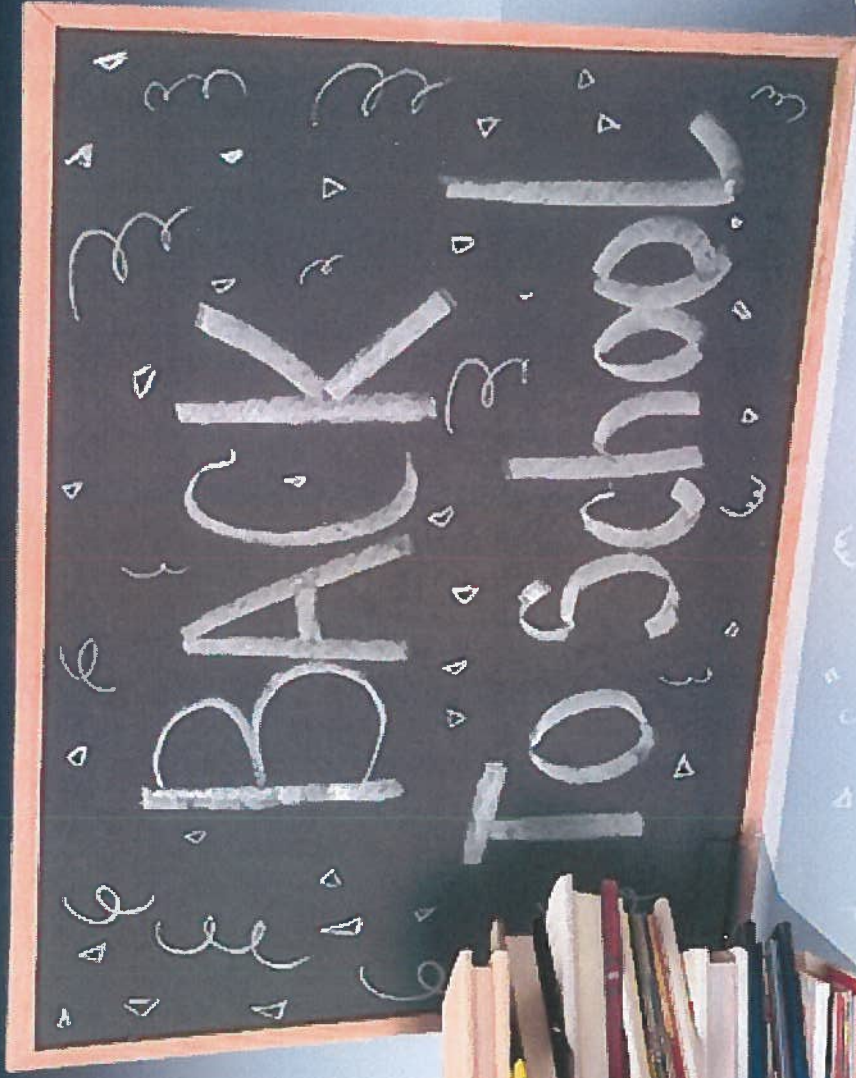 BACK
To School